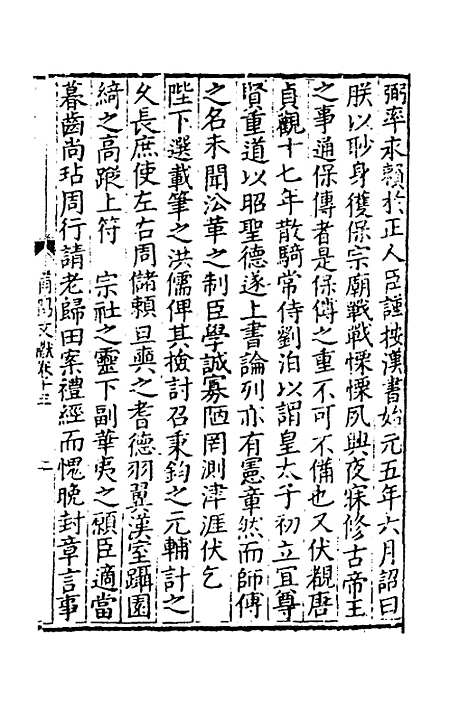 弼率永賴於正人臣謹按漢書始元五年六月詔曰
朕以眇身獲保宗廟戰戰慄慄夙興夜寐修古帝王
之事通保傅者是保傅之重不可不備也又伏覩唐
貞觀十七年散騎常侍劉洎以謂皇太子初立宜尊
賢重道以昭聖德遂上書論列亦有憲章然而師傅
之名未聞㳂革之制臣學誠寡陋罔測津涯伏乞
陛下選載筆之洪儒俾其檢討召秉鈞之元輔計之
久長庶使左右周儲賴旦奭之耆德羽翼漢室躡園
綺之高蹤上符　宗社之靈下副華夷之願臣適當
暮齒尚玷周行請老歸田案禮經而愧晚封章言事
莆陽文獻卷十三　二